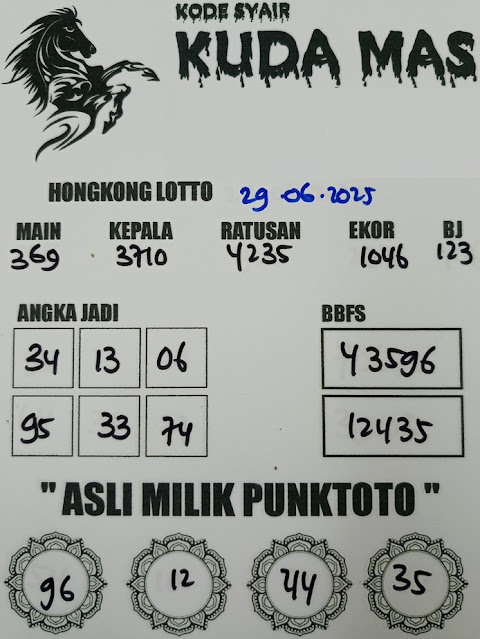 KODE SYAIR
KUDA MAS
HONGKONG LOTTO 29.06.2025
MAIN KEPALA RATUSAN EKOR BJ
369 3710 4235 1046 123
ANGKA JADI BBFS
34 13 06 43596
95 33 74 12435
" ASLI MILIK PUNKTOTO "
96 12 44 35